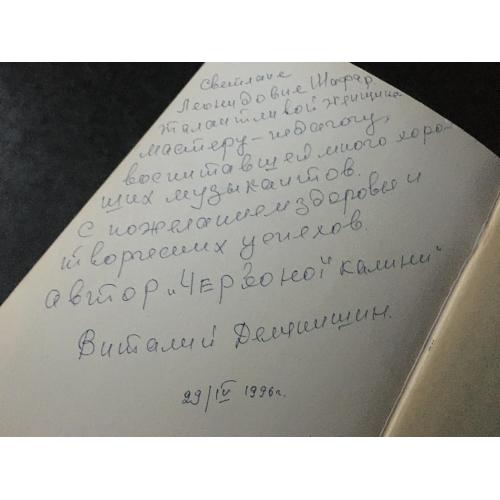 Светлане
Леонидовне Шафар
талантливой женщине
мастеру-педагогу,
воспитавшей много хоро-
ших музыкантов.
С пожеланием здоровья и
творческих успехов.
автор "Червоної калини"
Виталий Демчишин.
29/IV 1996г.